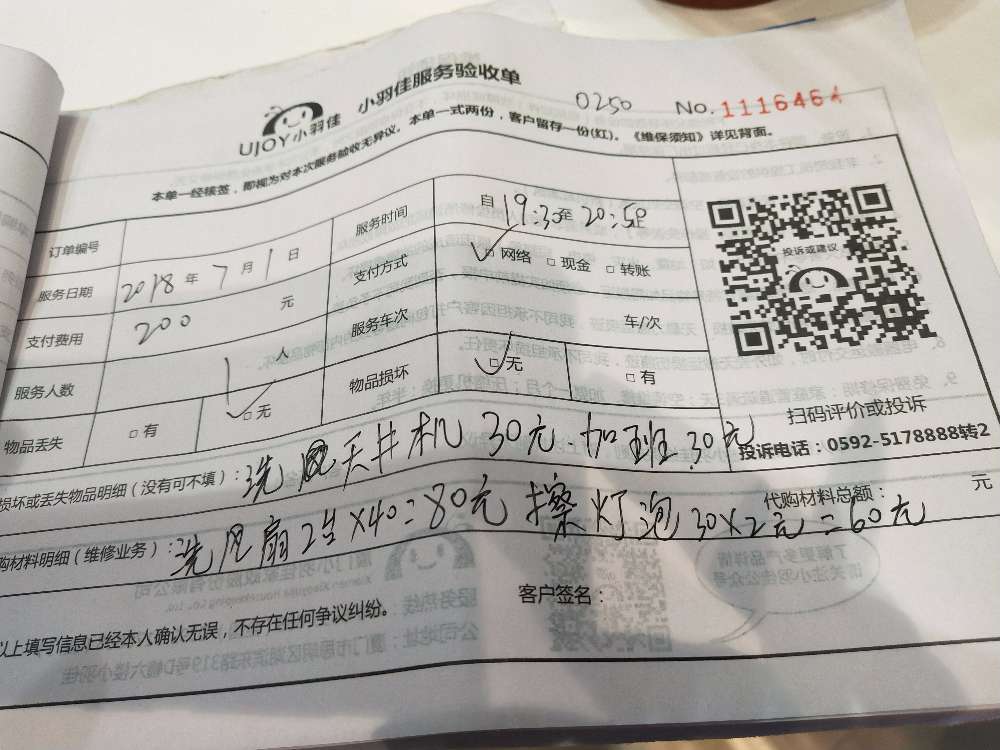 小羽佳服务验收单
UJOY小羽佳
0250 No.1116464
本单一经核签，即视为对本次服务验收无异议。本单一式两份，客户留存一份(红)。《维保须知》详见背面。
订单编号 服务时间 自19:30至20:50
服务日期 2018年7月1日 支付方式 □网络 □现金 □转账
支付费用 200 元 服务车次 车/次
服务人数 1人 物品损坏 □无 □有
物品丢失 □有 □无
投诉或建议
扫码评价或投诉
投诉电话：0592-5178888转2
损坏或丢失物品明细（没有可不填）：洗 天井机 30元.加班30元
代购材料总额： 元
购材料明细（维修业务）：洗风扇2台×40=80元 擦灯泡30×2元=60元
以上填写信息已经本人确认无误，不存在任何争议纠纷。
客户签名：